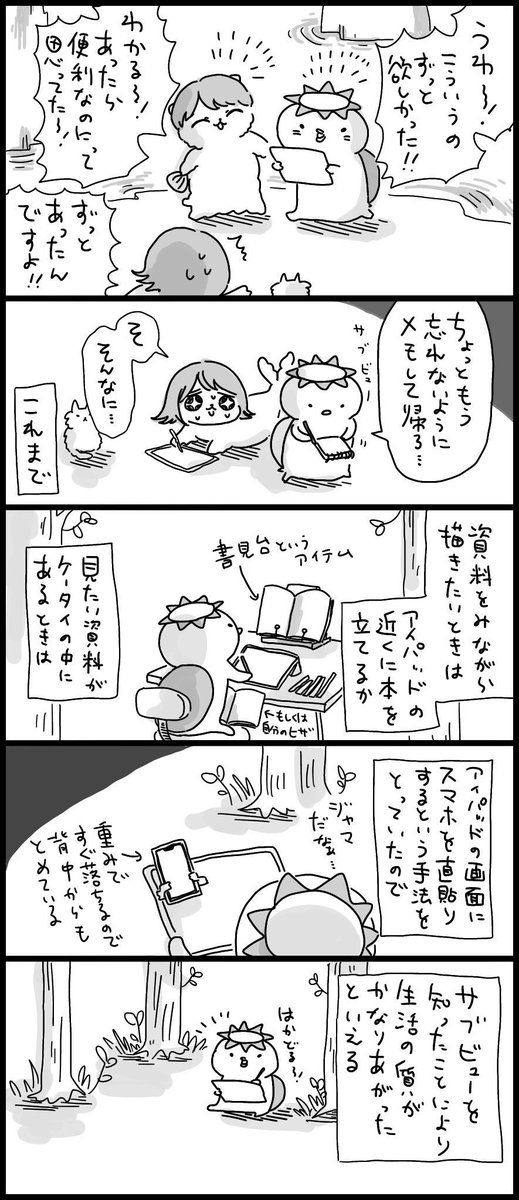 うわ〜!
こういうの
ずっと
欲しかった!!
わかる〜!
あったら
便利なのにって
思ってた〜!
ずっと
あったん
ですよ!!
ちょっともう
忘れないように
メモして帰ろ…
サブビュー
そ
そんなに…
これまで
資料をみながら
描きたいときは
アイパッドの
近くに本を
立てるか
書見台という
アイテム
←もしくは
自分のヒザ
見たい資料が
ケータイの中に
あるときは
アイパッドの画面に
スマホを直貼り
するという手法を
とっていたので
ジャマ
だなぁ…
重みで
すぐ落ちるので
背中からも
とめている
サブビューを
知ったことにより
生活の質が
かなりあがった
といえる
はかどる〜!